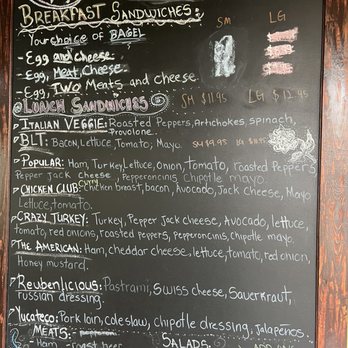 BREAKFAST SANDWICHES: SM LG
Your choice of BAGEL
- Egg and cheese
- Egg, Meat, Cheese
- Egg, Two Meats and cheese
LUNCH SANDWICHES SM $11.95 LG $12.95
ITALIAN VEGGIE: Roasted Peppers, Artichokes, spinach,
Provolone.
BLT: Bacon, Lettuce, Tomato, Mayo. SM $9.95 LG $11.95
POPULAR: Ham, Turkey, Lettuce, Onion, tomato, roasted Peppers
Pepper jack cheese, Pepperoncinis, Chipotle mayo.
CHICKEN CLUB: Curry Chicken breast, bacon, Avocado, Jack Cheese, Mayo
Lettuce, tomato.
CRAZY TURKEY: Turkey, Pepper Jack cheese, Avocado, lettuce,
tomato, red onions, roasted peppers, pepperoncinis, Chipotle mayo.
THE AMERICAN: Ham, cheddar cheese, lettuce, tomato, red onion,
Honey mustard.
Reubenlicious: Pastrami, Swiss cheese, Sauerkraut,
russian dressing.
Yucateco: Pork loin, coleslaw, chipotle dressing, Jalapeños.
MEATS: SALADS
- Ham - roast beef ADD ONS